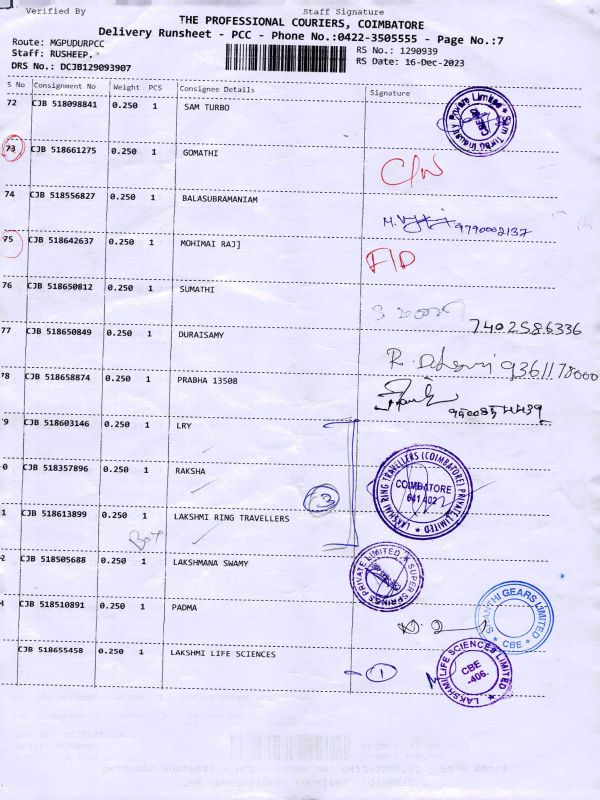 Verified By Staff Signature
THE PROFESSIONAL COURIERS, COIMBATORE
Delivery Runsheet - PCC - Phone No.:0422-3505555 - Page No.:7
Route: MGPUDURPCC
Staff: RUSHEEP.
DRS No.: DCJB129093907
RS No.: 1290939
RS Date: 16-Dec-2023
S No Consignment No Weight PCS Consignee Details Signature
72 CJB 518098841 0.250 1 SAM TURBO
Sam Turbo Industry Private Limited
CBE
73 CJB 518661275 0.250 1 GOMATHI
74 CJB 518556827 0.250 1 BALASUBRAMANIAM
9790002137
75 CJB 518642637 0.250 1 MOHIMAI RAJ]
F/D
76 CJB 518650812 0.250 1 SUMATHI
7402586336
77 CJB 518650849 0.250 1 DURAISAMY
78 CJB 518658874 0.250 1 PRABHA 13508
9 CJB 518603146 0.250 1 LRY
0 CJB 518357896 0.250 1 RAKSHA
3
LAKSHMI RING TRAVELLERS (COIMBATORE) PRIVATE LIMITED
COIMBATORE
641 402
1 CJB 518613899 0.250 1 LAKSHMI RING TRAVELLERS
2 CJB 518505688 0.250 1 LAKSHMANA SWAMY
SUPER SPRINGS PRIVATE LIMITED
3 CJB 518510891 0.250 1 PADMA
SHANTHI GEARS LIMITED
CBE
CJB 518655458 0.250 1 LAKSHMI LIFE SCIENCES
1
LAKSHMI LIFE SCIENCES LIMITED
CBE
-406.